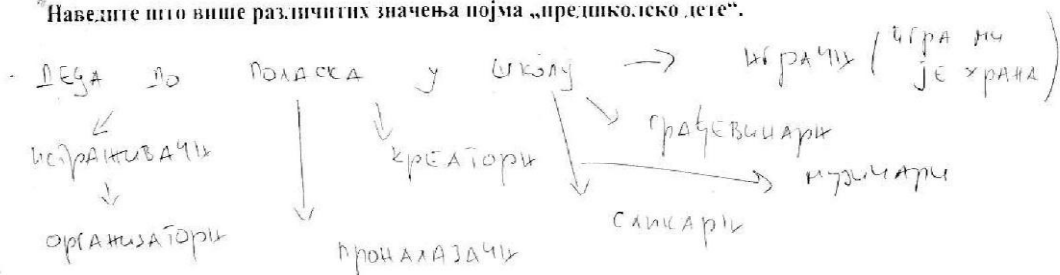 Наведите што више различитих значења појма „предшколско дете“.
- ДЕЦА ДО ПОЛАСКА У ШКОЛУ → ИГРАЧИ (ИГРА ИМ ЈЕ ХРАНА)
ИСТРАЖИВАЧИ КРЕАТОРИ ГРАЂЕВИНАРИ
МУЗИЧАРИ
ОРГАНИЗАТОРИ ПРОНАЛАЗАЧИ СЛИКАРИ